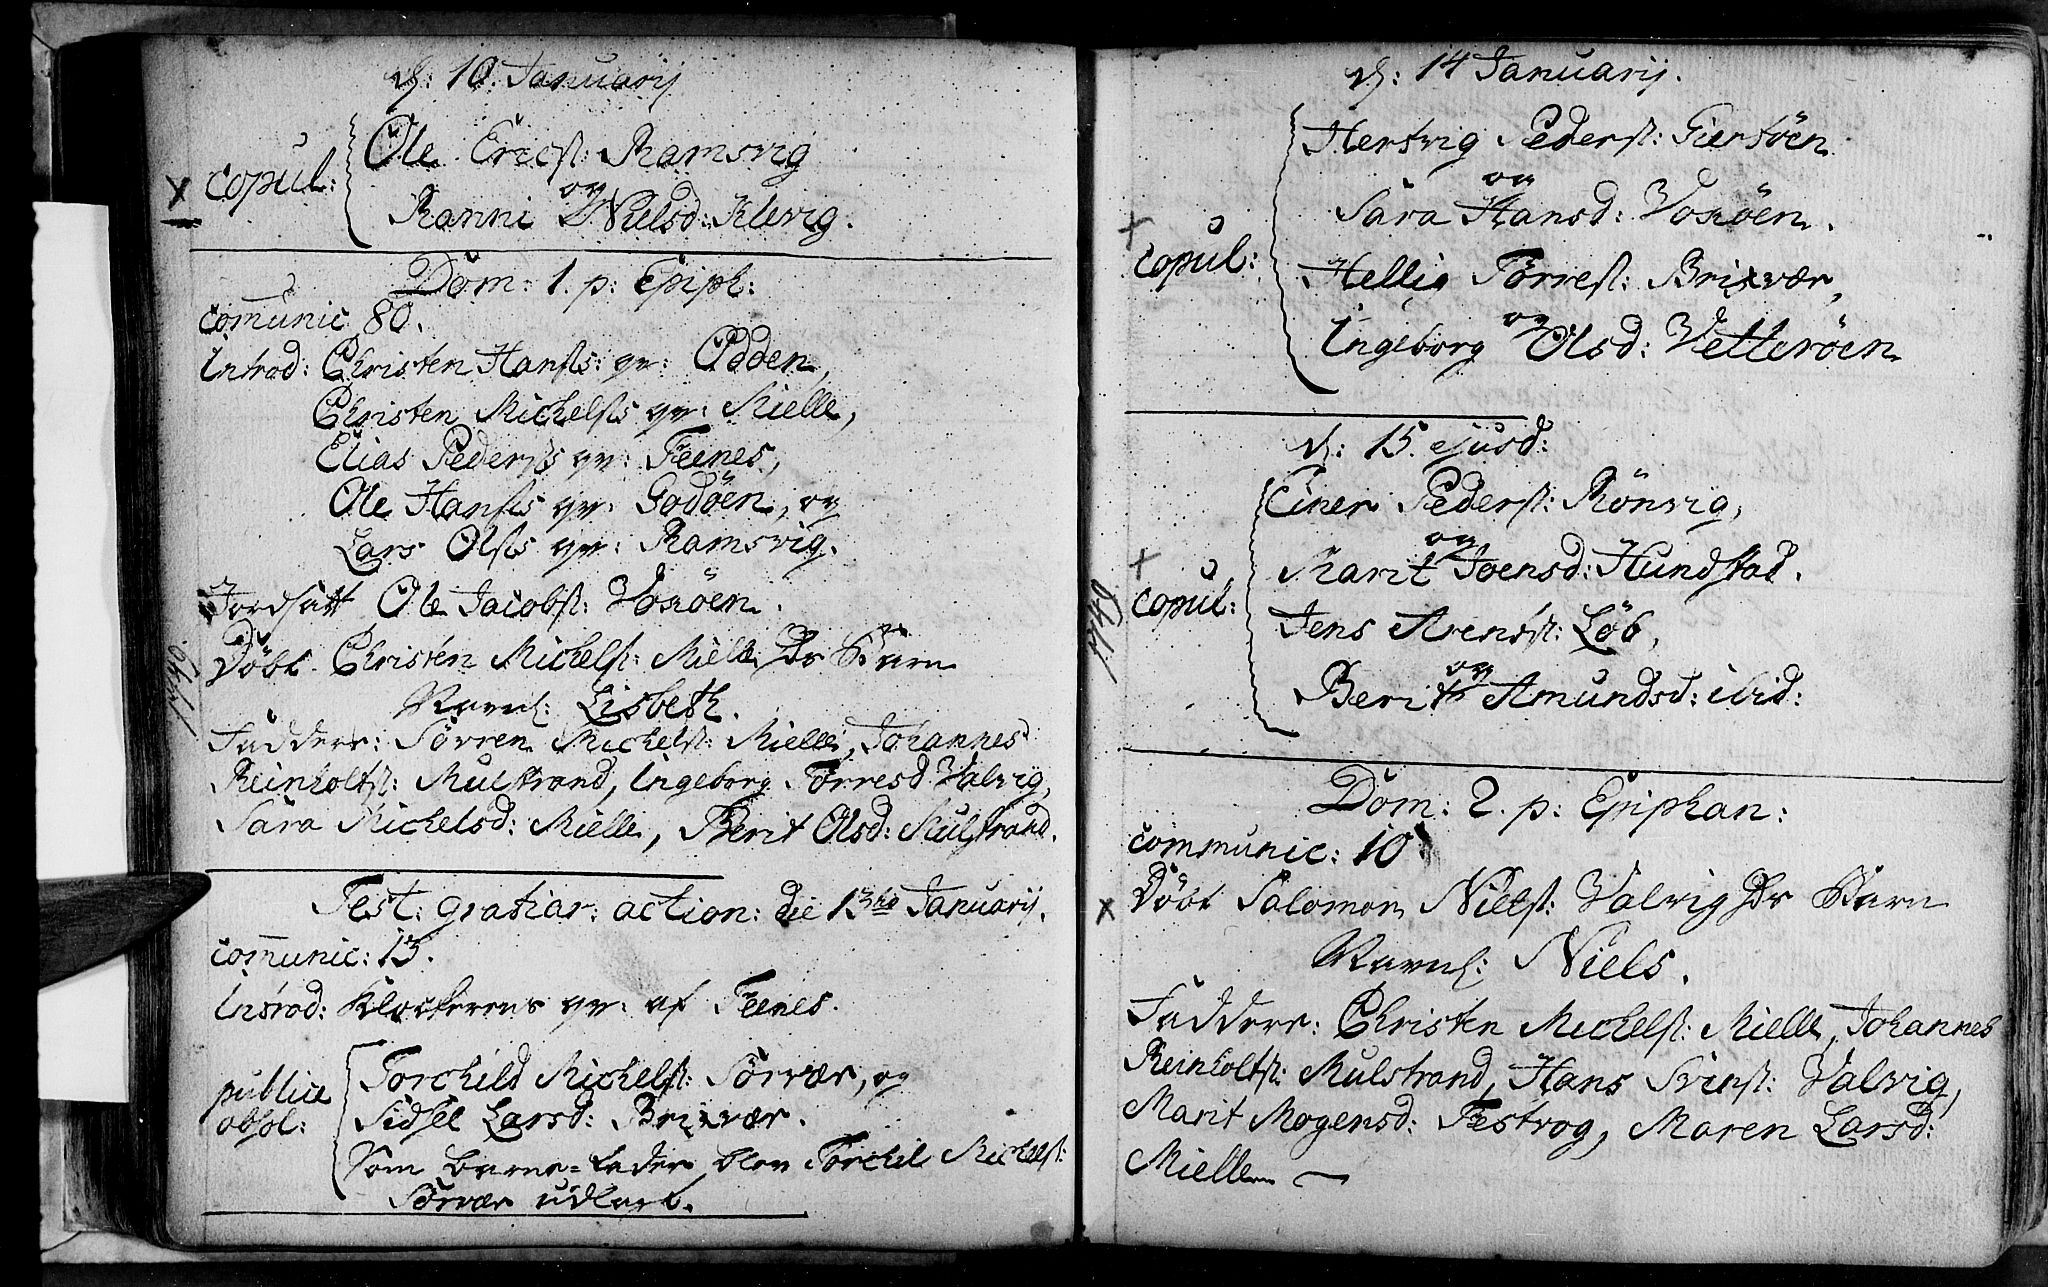 d: 10 Januarij
Ole Ericss: Ramsvig
copul: og
Ranni Nielsd: Klevig.
Dom: 1. p: Epiph:
com̅unic 80.
Introd: Christen Hanss: qv: Odden,
Christen Michelss qv: Mielle,
Elias Pederss qv: Feenes,
Ole Hanss qv: Godöen, og
Lars Olss qv: Ramsvig.
Jordsatt Ole Jacobs: Voxöen.
Döbt Christen Michelss: Mielle Ds Barn
Navnl: Lisbeth.
1749
Faddere: Sörren Michelss: Mielle, Johannes
Reinholtss: Mulstrand, Ingeborg Torresd Valvig,
Sara Michelsd: Mielle, Berit Olsd: Mulstrand.
Fest: gratiar: action: die 13tio Januarij.
com̅unic: 15.
Introd: Klockerens qv: af Feenes.
Torchild Michelss: Sörvær, og
publice Sidsel Larsd: Brixvær.
absol:
Som Barne-fader blev Torchil Michelss:
Sörvær udlagt.
d: 14 Januarij.
Hertvig Pederss: Giersöen
og
Sara Hansd: Voxöen.
copul:
Hellig Torress: Brixvær,
og
Ingeborg Olsd: Vetteröen
d: 15. ejusd:
Einer Pederss: Rönvig,
og
Marit Joensd: Hundstad.
copul:
1749
Jens Arentss: Löb,
og
Berit Amundsd: ibid:
Dom: 2. p: Epiphan:
communic: 10
Döbt Salomon Nielss: Valvig Ds Barn
Navnl: Niels.
Faddere: Christen Michelss: Mielle, Johannes
Reinholtss: Mulstrand, Hans Svinss: Valvig,
Marit Mogensd: Festvog, Maren Larsd:
Mielle